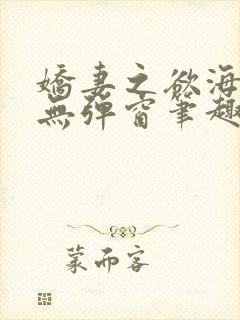 嬌妻之欲海
無彈窗筆趣
蒙而客